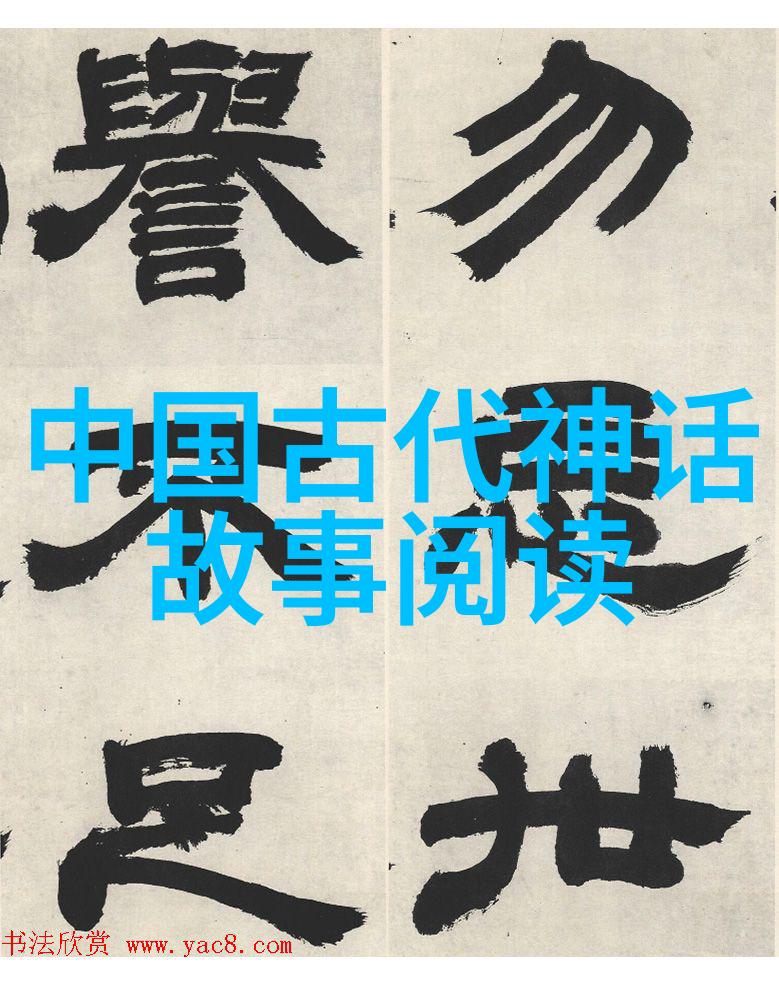 勿世
譽不足
中国古代神话
故事阅读
书法欣赏 www.yac8.com